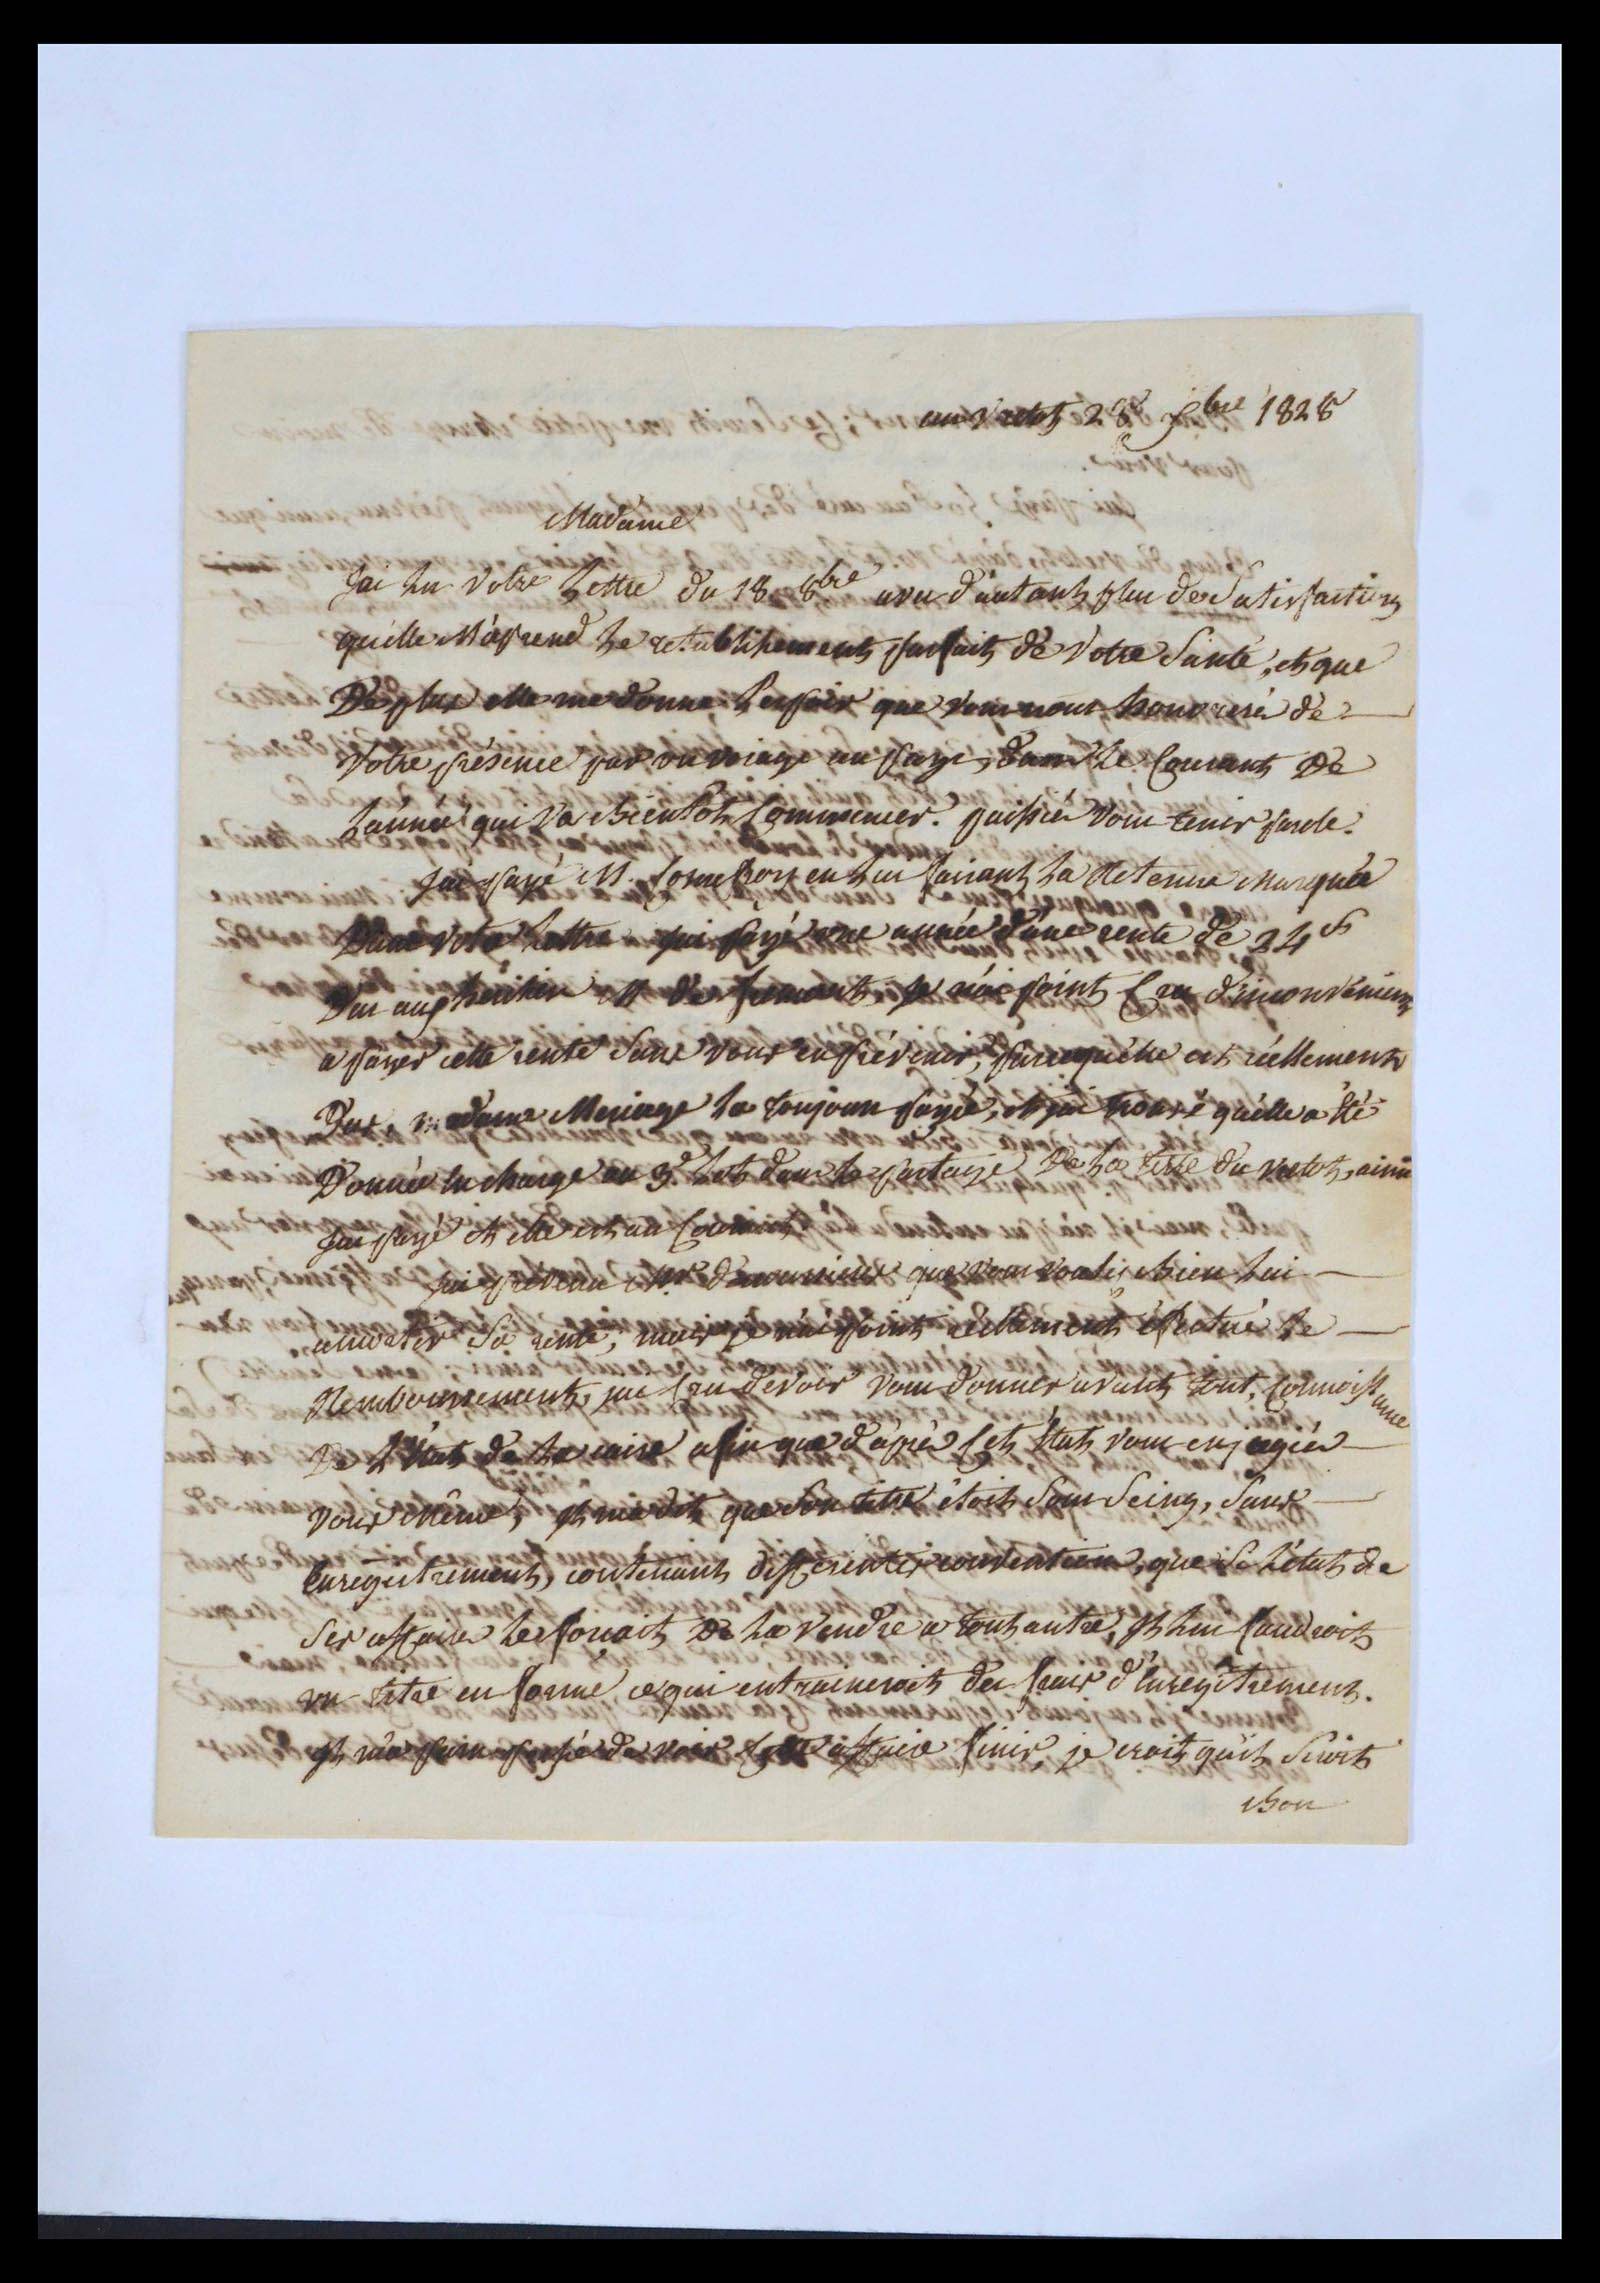 au vretot 28 9bre 1828
Madame
J'ai lu votre lettre du 18 8bre avec d'autant plus de satisfaction
qu'elle m'aprend le retablissement parfait de votre santé, et que
De plus elle me donne l'espoir que vous nous honorerés de
votre présence par un voiage au pays, dans le courant De
l'année qui va bientôt commencer. puissiés vous tenir parole.
J'ai payé M. en lui faisant la Retenue marquée
Dans votre lettre. j'ai payé une année d'une rente de 24
Due aux heritiers M je n'ai point cru d'inconvenient
a payer cette rente sans vous en prévenir, parcequ'elle est réellement
Due, madame Mesnage la toujours payée, et j'ai trouvé qu'elle a été
Donnée en charge au 3e lot dans le partage De la terre du vretot, ainsi
j'ai payé et elle est au Courant
J'ai prevenu Mr que vous voulés bien lui
amortir sa rente, mais je n'ai point réellement éffectué le
Remboursement, j'ai cru devoir vous donner avant tout, connoissance
De l'État de la caisse afin que d'après cet État vous en jugiés
vous même, il m'a dit que son titre étoit sous seing, sans
Enregistrement, contenant differentes conventions, que si l'état de
ses affaires le forçait De la vendre a tout autre, il lui faudroit
un titre en forme, ce qui entraineroit des frais d'Enregitrement.
il m'a paru de voir cette affaire finir, je crois qu'il seroit
bon